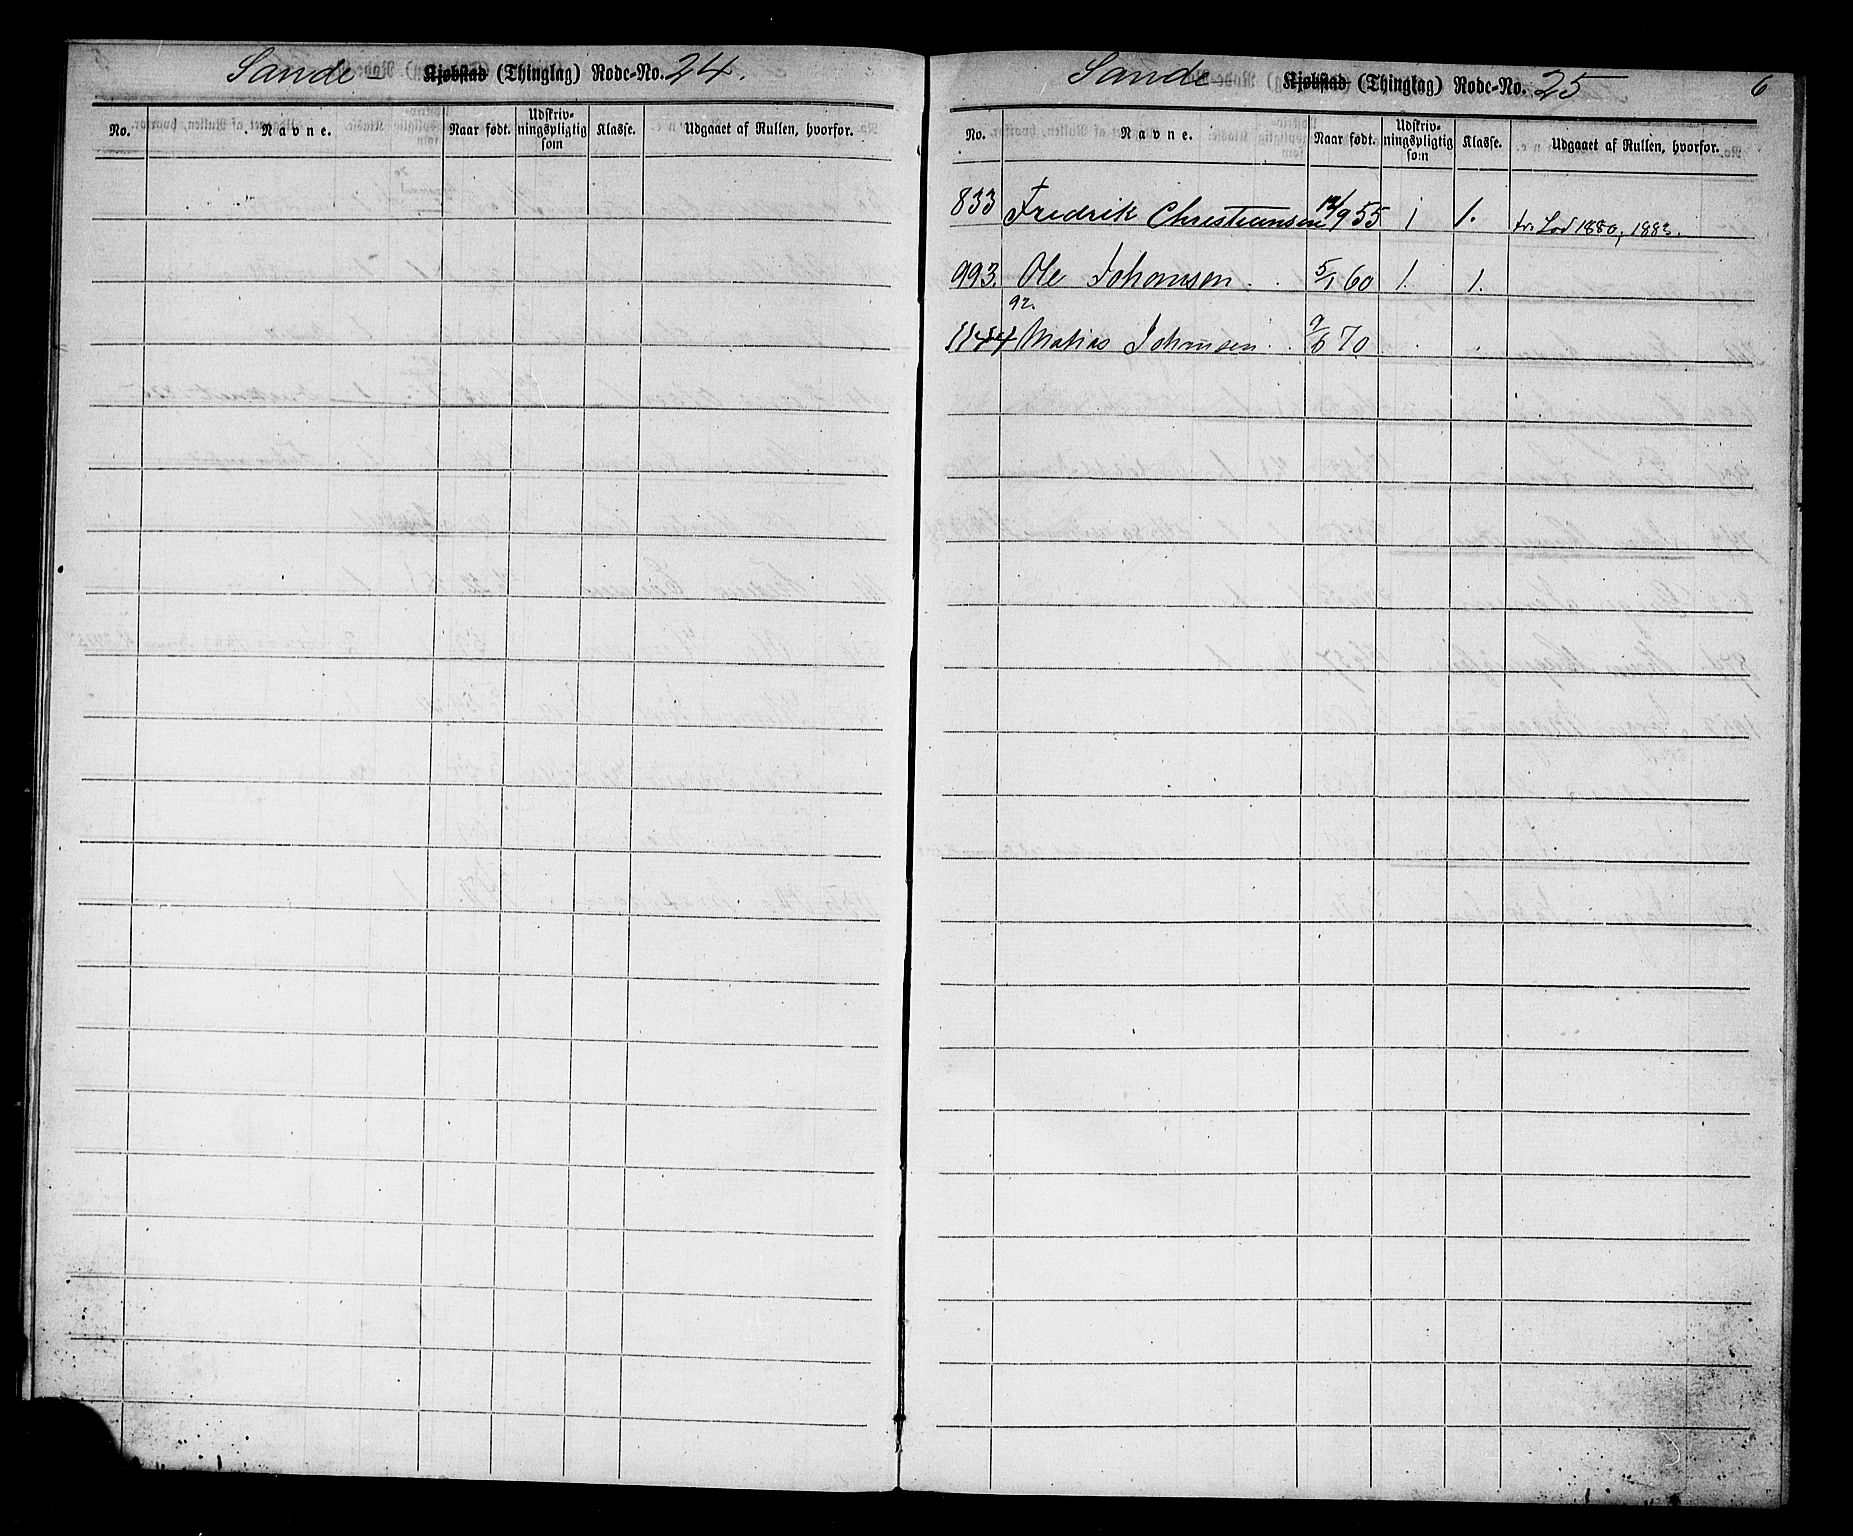 Sande - Kjøbstad (Thinglag) Rode-No. 24.
No. Navne. Naar født. Udskriv-ningspligtig som Klasse. Udgaaet af Rullen, hvorfor.
Sande Kjøbstad (Thinglag) Rode-No. 25 6
No. Navne. Naar født. Udskriv-ningspligtig som Klasse. Udgaaet af Rullen, hvorfor.
833 Fredrik Christiansen 12/9 55 1 1. fr. Lod 1880, 1882.
993. Ole Johannsen. 5/1 60 1. 1.
92.
1144 Matias Johansen 9/6 70